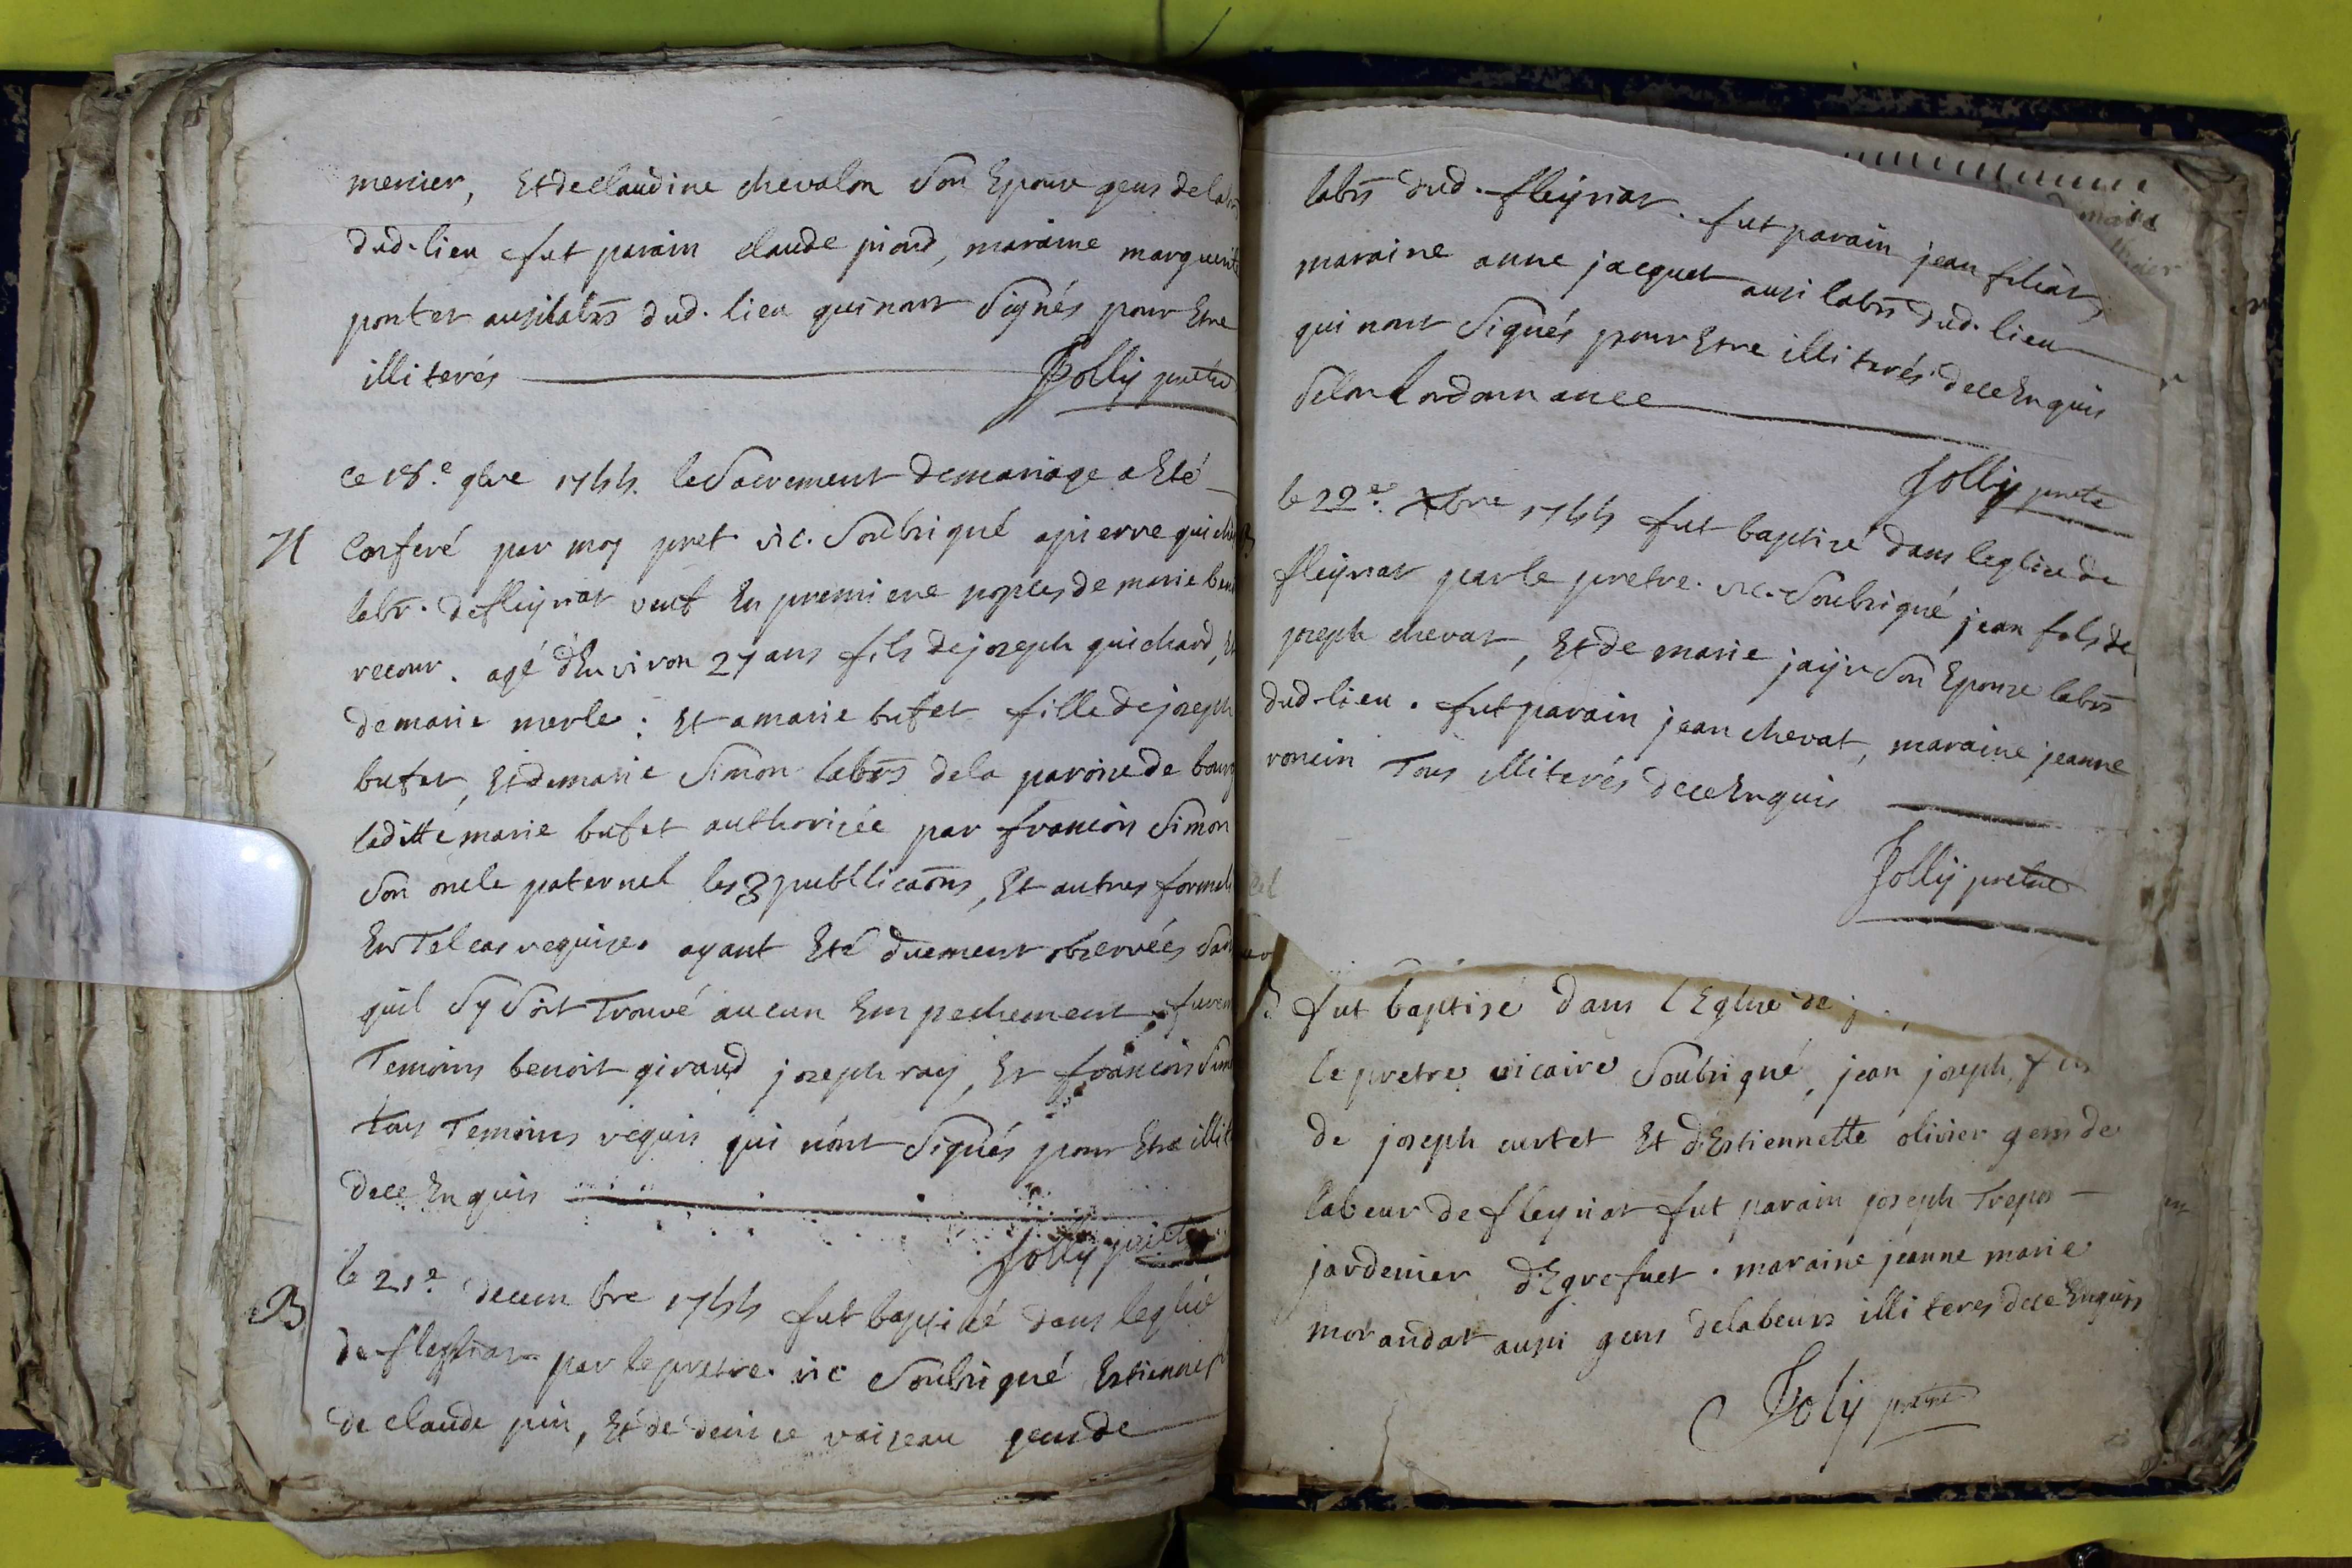 mercier, Et de claudine chevalon Son Epouse gens de lab
dud. lieu fut parain claude piond, maraine marguerite
pontet aussi labrs dud. lieu qui nont Signés pour Etre
illiterés Jolly pretre
Ce 18.e 9bre 1744. le Sacrement de mariage a Eté
M Conferé par moy pret. vic. Soubsigné a pierre guich
labr. de fleyriat veuf En premiere nopces de marie
recour. agé d'Environ 27 ans fils de joseph guichard, Et
de marie merle. Et a marie bufet fille de joseph
bufet, Et de marie Simon labrs de la paroisse de bourg
laditte marie bufet authorisée par francois Simon
Son oncle paternel les 3 publlicaons, Et autres formal
En Tel cas requises ayant Eté duement observées Sans
quil Sy Soit Trouvé aucun Empechement, furent
Temoins benoit giraud joseph ray, Et francois Simon
tous Temoins requis qui n'ont Signés pour Etre illit
de ce Enquis
Jolly pretre
B le 21.e decembre 1744 fut baptisé dans leglise
de fleyriat par le pretre. vic Soubsigné Estienne f
de claude pin, Et de denise vaizeau gens de
labrs dud. fleyriat. fut parain jean filiat,
maraine anne jacquet aussi labrs dud. lieu
qui nont Signés pour Etre illiterés de ce Enquis
Selon lordonnance
Jolly pretre
le 22.e Xbre 1744 fut baptisé dans leglise de
fleyriat par le pretre. vic. Soubsigné jean fils de
joseph chevat, Et de marie jayr Son Epouse labrs
dud. lieu. fut parain jean chevat, maraine jeanne
roncin Tous illiterés de ce Enquis
Jolly pretre
fut baptisé dans lEglise de
le pretre vicaire Soubsigné, jean joseph, fils
de joseph curtet Et d'Estiennette olivier gens de
labeur de fleyriat fut parain joseph Trepos
jardenier d'Egrefuet. maraine jeanne marie
morandat aussi gens de labeurs illiteres de ce Enquis
Joly pretre